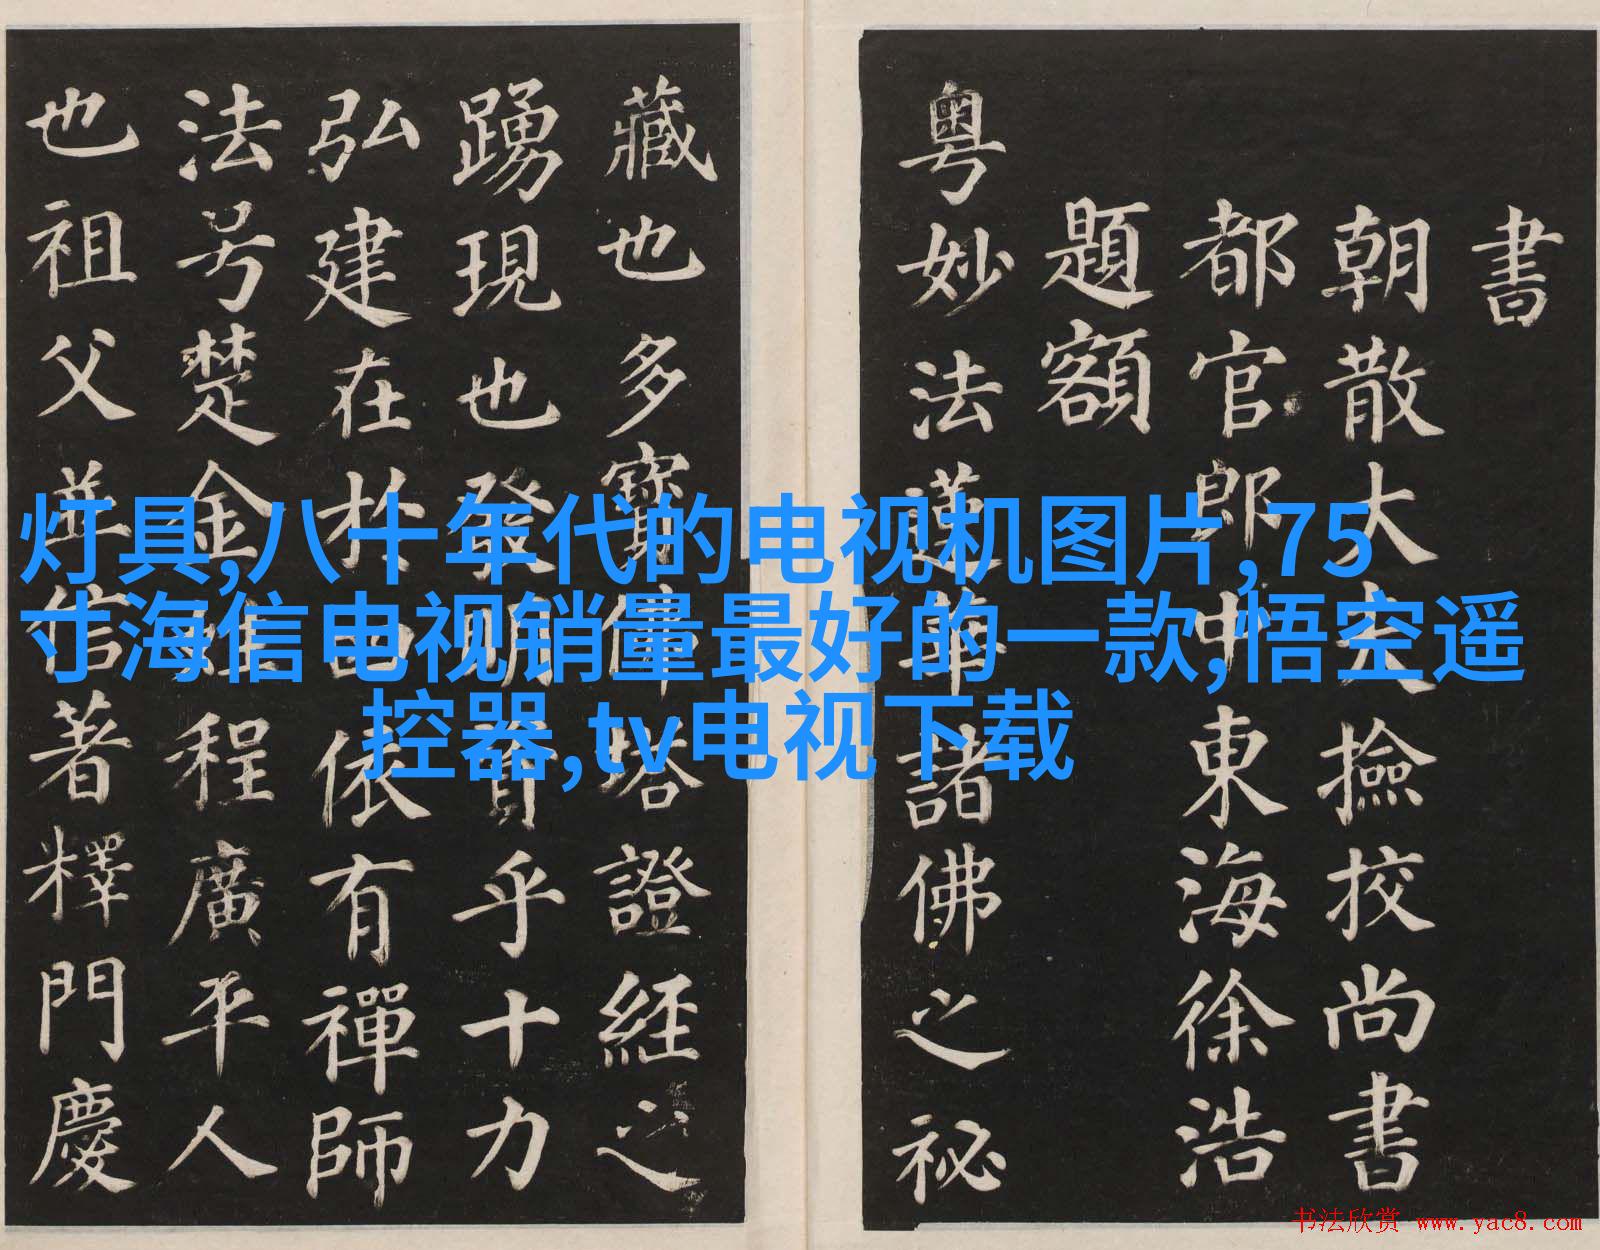 書
朝散大夫撿挍尚書
都官郎中東海徐浩
題額
粵妙法蓮華諸佛之祕
藏也多寶佛塔證經之
踴現也發明資乎十力
弘建在於四依有禪師
法号楚金姓程廣平人
也祖父並信著釋門慶
灯具,八十年代的电视机图片,75
寸海信电视销量最好的一款,悟空遥
控器,tv电视下载
书法欣赏 www.yac8.com